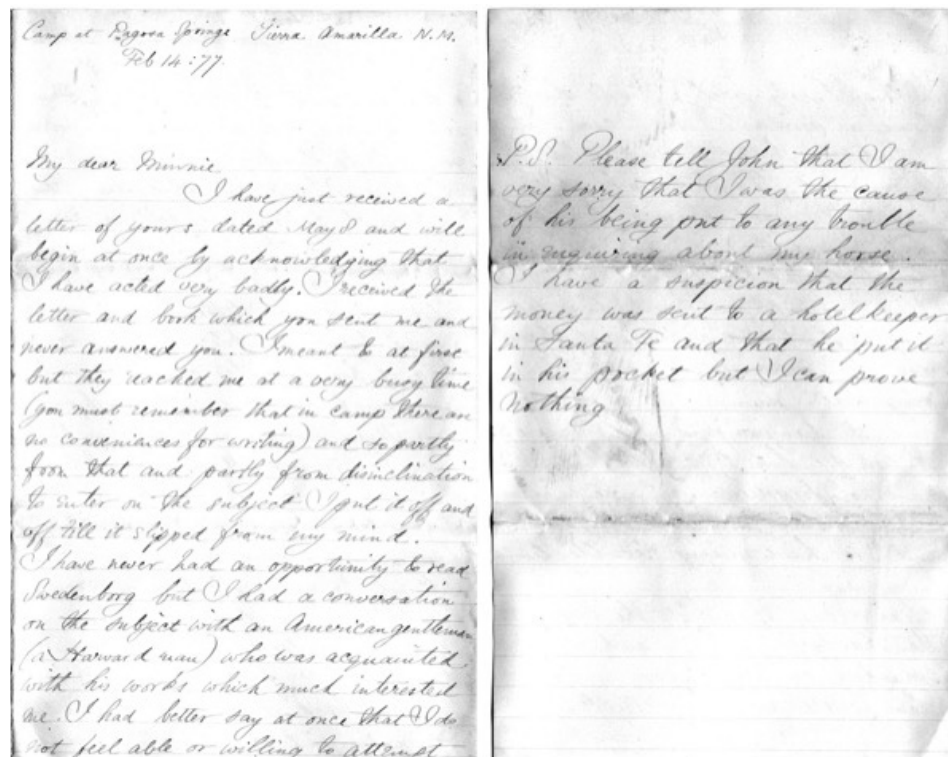 Camp at Pagosa Springs Tierra Amarilla N.M.
Feb 14:77.
My dear Minnie
I have just received a
letter of yours dated May 8 and will
begin at once by acknowledging that
I have acted very badly. I received the
letter and book which you sent me and
never answered you. I meant to at first
but they reached me at a very busy time
(you must remember that in camp there are
no conveniences for writing) and so partly
from that and partly from disinclination
to enter on the subject I put it off and
off till it slipped from my mind.
I have never had an opportunity to read
Swedenborg but I had a conversation
on the subject with an American gentleman
(a Harward man) who was acquainted
with his works which much interested
me. I had better say at once that I do
not feel able or willing to attempt
P.S. Please tell John that I am
very sorry that I was the cause
of his being put to any trouble
in enquiring about my horse.
I have a suspicion that the
money was sent to a hotelkeeper
in Santa Fe and that he put it
in his pocket but I can prove
nothing